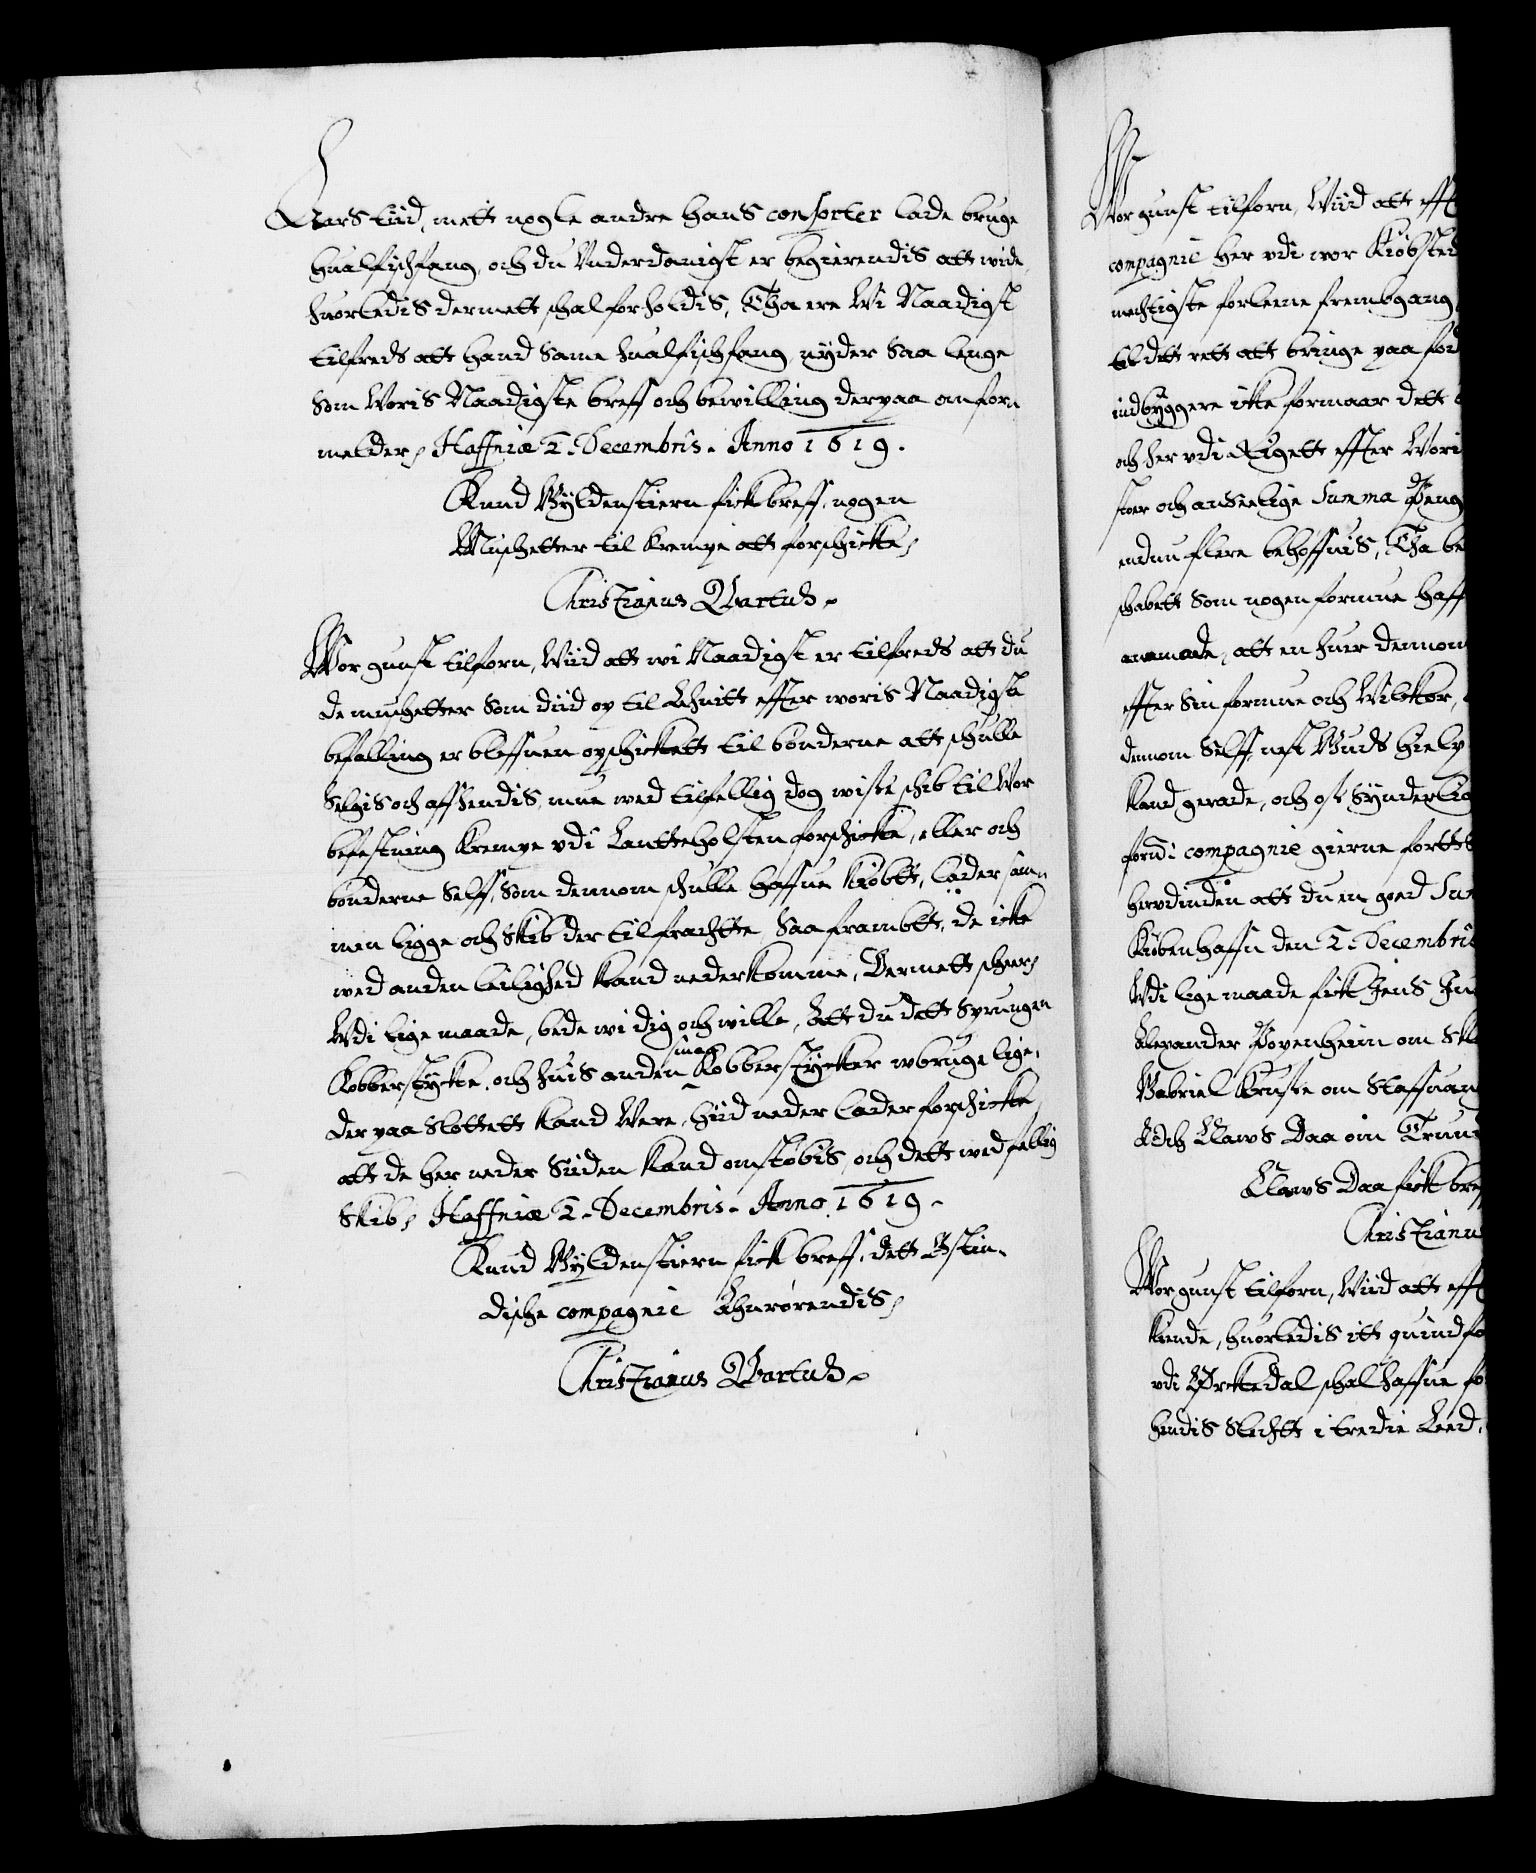 Aars tiid, mett nogle andre hans consorter lade bruge
hualfischfang, och du Vnderdanigst er begierendis att wide,
huorledis dermett schal forholdis, Tha ere Wi Naadigst
tilfreds att hand Same hualfischfang nyder Saa lenge
Som Woris Naadigste breff och bewilling derpaa om form
melder, Haffniæ 2. Decembris. Anno 1619.
Knud Gyldenstiern fick breff, nogen
Muschetter til Krempe att forschicke,
Christianus Qvartus.
Wor gunst tilforn, Wiid att wi Naadigst er tilfreds att du
de muschetter Som diid op til Lehnitt effter woris Naadigste
befalling er bleffuen opschickett til bønderne att schulle
Selgis och affhendis, mue wed tilfellig dog wisse schib til Wor
befestning Krempe vdi Lantteholsten forschicke, eller och
bønderne Selff, Som dennom schulle haffue kiøbtt, lader sam¬
men ligge och Skib der til frachtte Saa frambtt, de icke
wed anden leilighed kand nederkomme, Dermett scheer,
Vdi lige maade, bede wi dig och wille, Att du dett Sprungen
Kobberstycke, och huis anden smaa Kobberstycker wbrugelige,
der paa Slottett kand Were, hiid neder lader forschicke,
att de her neder Siden kand omstøbis, och dett wed fellig
Skib, Haffniæ 2. Decembris. Anno 1619.
Knud Gyldenstiern fick breff, dett Ostin¬
dische compagnie Ahnrørendis,
Christianus Qvartus.
Wor gunst tilforn, Wiid att efft
compagnie her vdi wor Kiøbsted
mechtigste forleene frembgang,
til dett rett att bringe paa ford
indbyggere icke formaar dett
och her vdi Rigett effter Wori
stoer och anseelige Summa Peng
endnu flere behoffuis, Tha be
schabett Som nogen formue haff
anmode, att en huer dennom
effter Sin formue och Wilckor,
dennom Selff, nest Guds hielp
kand gerade, och oss Synderlig
fornd: compagnie gierne fortts
herudinden att du en goed Sum
Kiøbenhaffn den 2. Decembris
Vdi lige maade fick Jens Ju
Alexander Papenheim om
Gabriel Kruse om Staffuan
Och Claws Daa om Trund
Claws Daa fick bref
Christianu
Wor gunst tilforn, Wiid att efft
kiende, huorledis itt quindfo
vdi Ørckedal schal haffue fo
hendis Slechtt i tredie Leed,